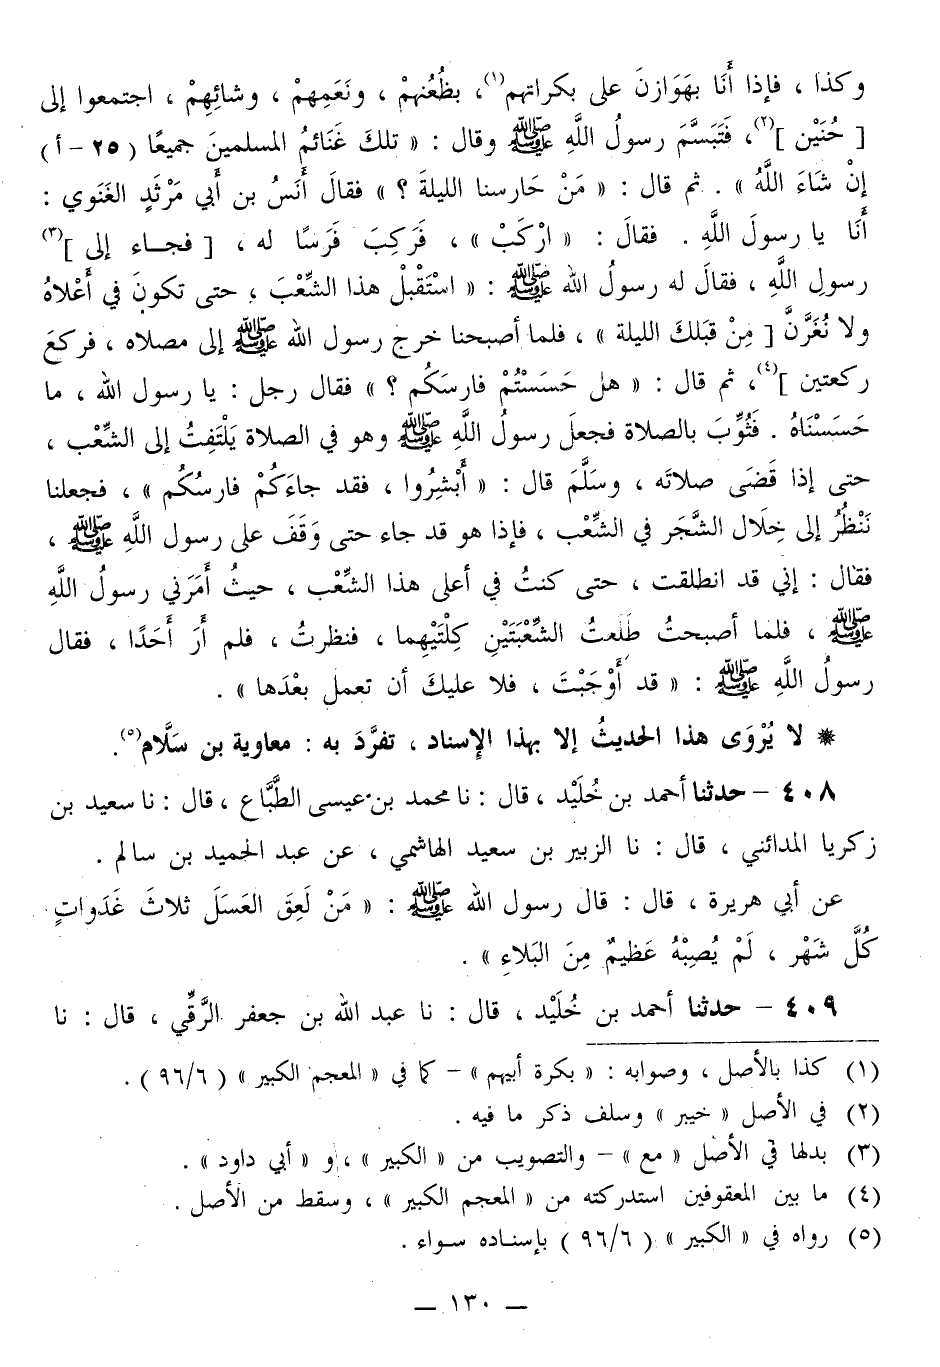 وكذا ، فإذا أَنَا بهَوَازنَ على بكراتهم(١)، بظُعُنهِمْ ، ونَعَمِهمْ ، وشائِهِمْ ، اجتمعوا إلى
[ حُنَيْن ](٢)، فَتَبَسَّمَ رسولُ اللَّهِ ﷺ وقال : « تلكَ غَنَائمُ المسلمينَ جميعًا ( ٢٥ - أ )
إنْ شَاءَ اللَّهُ » . ثم قال : « مَنْ حَارسنا الليلةَ ؟ » فقالَ أَنَسُ بن أَبي مَرْثَدٍ الغَنَوي :
أَنَا يا رسولَ اللَّهِ . فقالَ : « ارْكَبْ » ، فَركِبَ فَرَسًا له ، [ فجاء إلى ](٣)
رسولِ اللَّهِ ، فقالَ له رسولُ الله ﷺ : « اسْتَقْبلْ هذا الشِّعْبَ ، حتى تكونَ في أَعْلاهُ
ولا نُغَرَّنَّ [ مِنْ قبَلكَ الليلة » ، فلما أصبحنا خرج رسول الله ﷺ إلى مصلاه ، فركعَ
ركعتين ](٤)، ثم قال : « هل حَسَسْتُمْ فارسَكُم ؟ » فقال رجل : يا رسول الله ، ما
حَسَسْنَاهُ . فَثُوِّبَ بالصلاة فجعلَ رسولُ اللَّهِ ﷺ وهو في الصلاة يَلْتَفِتُ إلى الشِّعْب ،
حتى إذا قَضَى صلاتَه ، وسَلَّمَ قال : « أَبْشِرُوا ، فقد جاءَكُمْ فارسُكُم » ، فجعلنا
نَنْظُرُ إلى خِلَال الشَّجَر في الشِّعْب ، فإذا هو قد جاء حتى وَقَفَ على رسول اللَّهِ ﷺ ،
فقال : إني قد انطلقت ، حتى كنتُ في أعلى هذا الشِّعْب ، حيثُ أَمَرَني رسولُ اللَّهِ
ﷺ ، فلما أصبحتُ طَلَعتُ الشِّعْبَتَيْنِ كِلْتَيْهِما ، فنظرتُ ، فلم أَرَ أَحَدًا ، فقال
رسولُ اللَّهِ ﷺ : « قد أَوْجَبْتَ ، فلا عليكَ أن تعمل بعْدَها » .
* لا يُرْوَى هذا الحديثُ إلا بهذا الإسناد ، تفرَّدَ به : معاوية بن سَلَّام(٥).
٤٠٨ - حدثنا أحمد بن خُلَيْد ، قال : نا محمد بن عيسى الطَّبَّاع ، قال : نا سعيد بن
زكريا المدائني ، قال : نا الزبير بن سعيد الهاشمي ، عن عبد الحميد بن سالم .
عن أبي هريرة ، قال : قال رسول الله ﷺ : « مَنْ لَعِقَ العَسَلَ ثلاثَ غَدَواتٍ
كُلَّ شَهْر ، لَمْ يُصِبْهُ عَظِيمٌ مِنَ البَلَاءِ » .
٤٠٩ - حدثنا أحمد بن خُلَيْد ، قال : نا عبد الله بن جعفر الرَّقِّي ، قال : نا
(١) كذا بالأصل ، وصوابه : « بكرة أبيهم » - كما في « المعجم الكبير » ( ٩٦/٦ ) .
(٢) في الأصل « خيبر » وسلف ذكر ما فيه .
(٣) بدلها في الأصل « مع » - والتصويب من « الكبير » ، و « أبي داود » .
(٤) ما بين المعقوفين استدركته من « المعجم الكبير » ، وسقط من الأصل .
(٥) رواه في « الكبير » ( ٩٦/٦ ) بإسناده سواء .
— ١٣٠ —